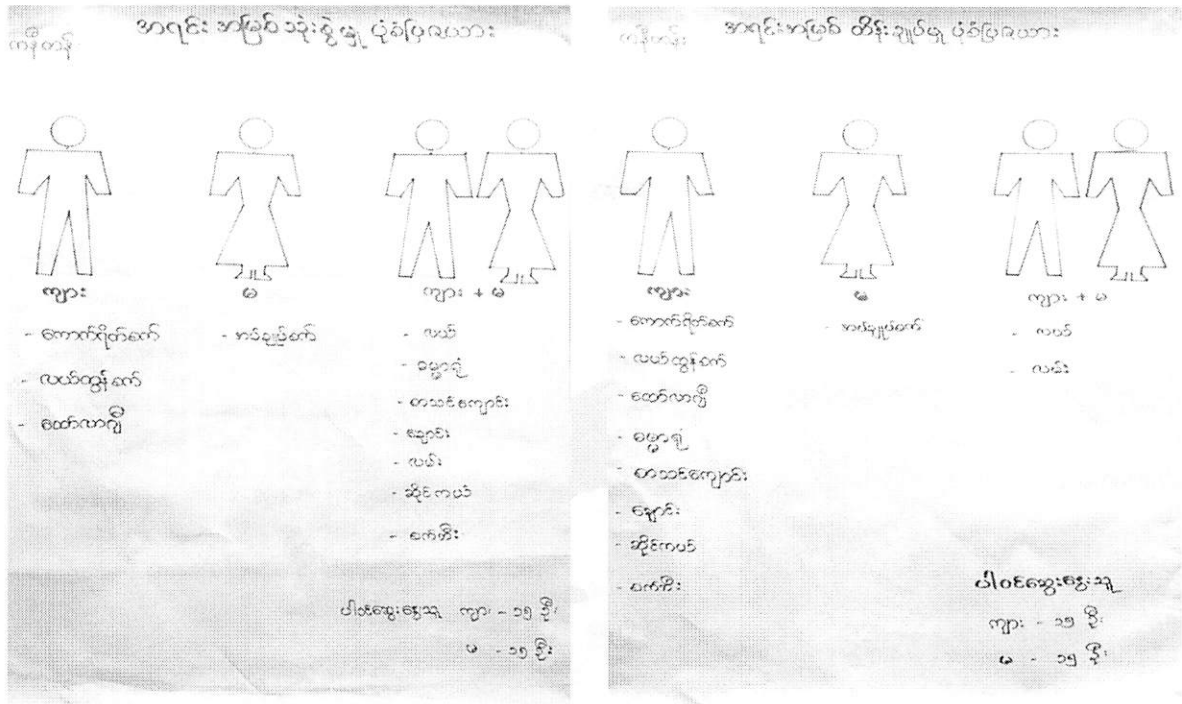 ကနီတန်
အရင်းအမြစ် သုံးစွဲမှု ပုံစံပြဇယား
ကျား
မ
ကျား + မ
- ကောက်ရိတ်စက်
- လယ်ထွန်စက်
- ထော်လာဂျီ
- အပ်ချုပ်စက်
- လယ်
- ဓမ္မာရုံ
- စာသင်ကျောင်း
- ချောင်း
- လမ်း
- ဆိုင်ကယ်
- စက်ဘီး
ပါဝင်ဆွေးနွေးသူ ကျား - ၁၅ ဦး
မ - ၁၅ ဦး
ကနီတန်
အရင်းအမြစ် ထိန်းချုပ်မှု ပုံစံပြဇယား
ကျား
မ
ကျား + မ
- ကောက်ရိတ်စက်
- လယ်ထွန်စက်
- ထော်လာဂျီ
- ဓမ္မာရုံ
- စာသင်ကျောင်း
- ချောင်း
- ဆိုင်ကယ်
- စက်ဘီး
- အပ်ချုပ်စက်
- လယ်
- လမ်း
ပါဝင်ဆွေးနွေးသူ
ကျား - ၁၅ ဦး
မ - ၁၅ ဦး